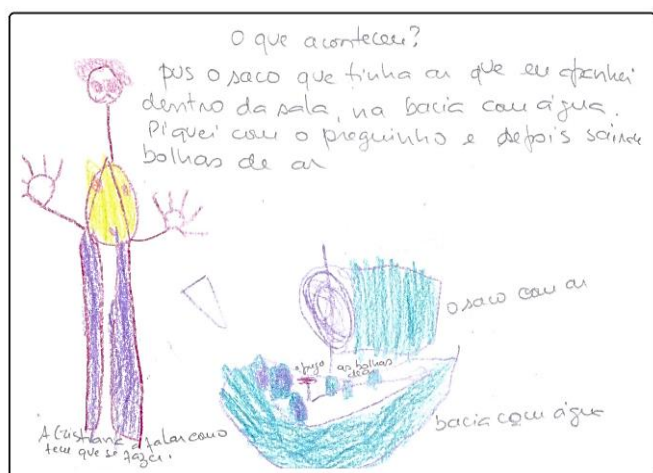 O que aconteceu?
pus o saco que tinha ar que eu apanhei
dentro da sala, na bacia com água.
Piquei com o preguinho e depois sairam
bolhas de ar
o saco com ar
o prego
as bolhas
de ar
bacia com água
A Cristiana a falar como
tem que se fazer.